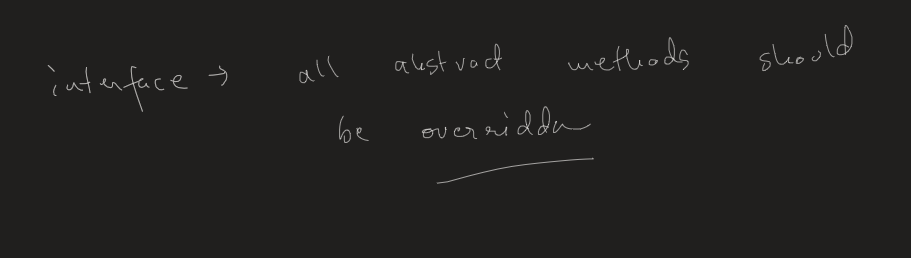 interface → all abstract methods should
be overridden